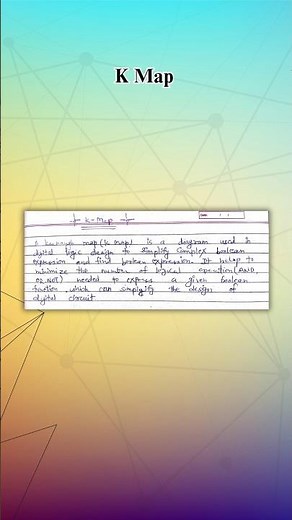 K Map
K-Map
A karnaugh map (K map) is a diagram used in
digital logic design to simplify complex boolean
expression and find boolean expression. It helps to
minimize the number of logical operation (AND,
OR, NOT) needed to express a given boolean
function, which can simplify the design of
digital circuit.